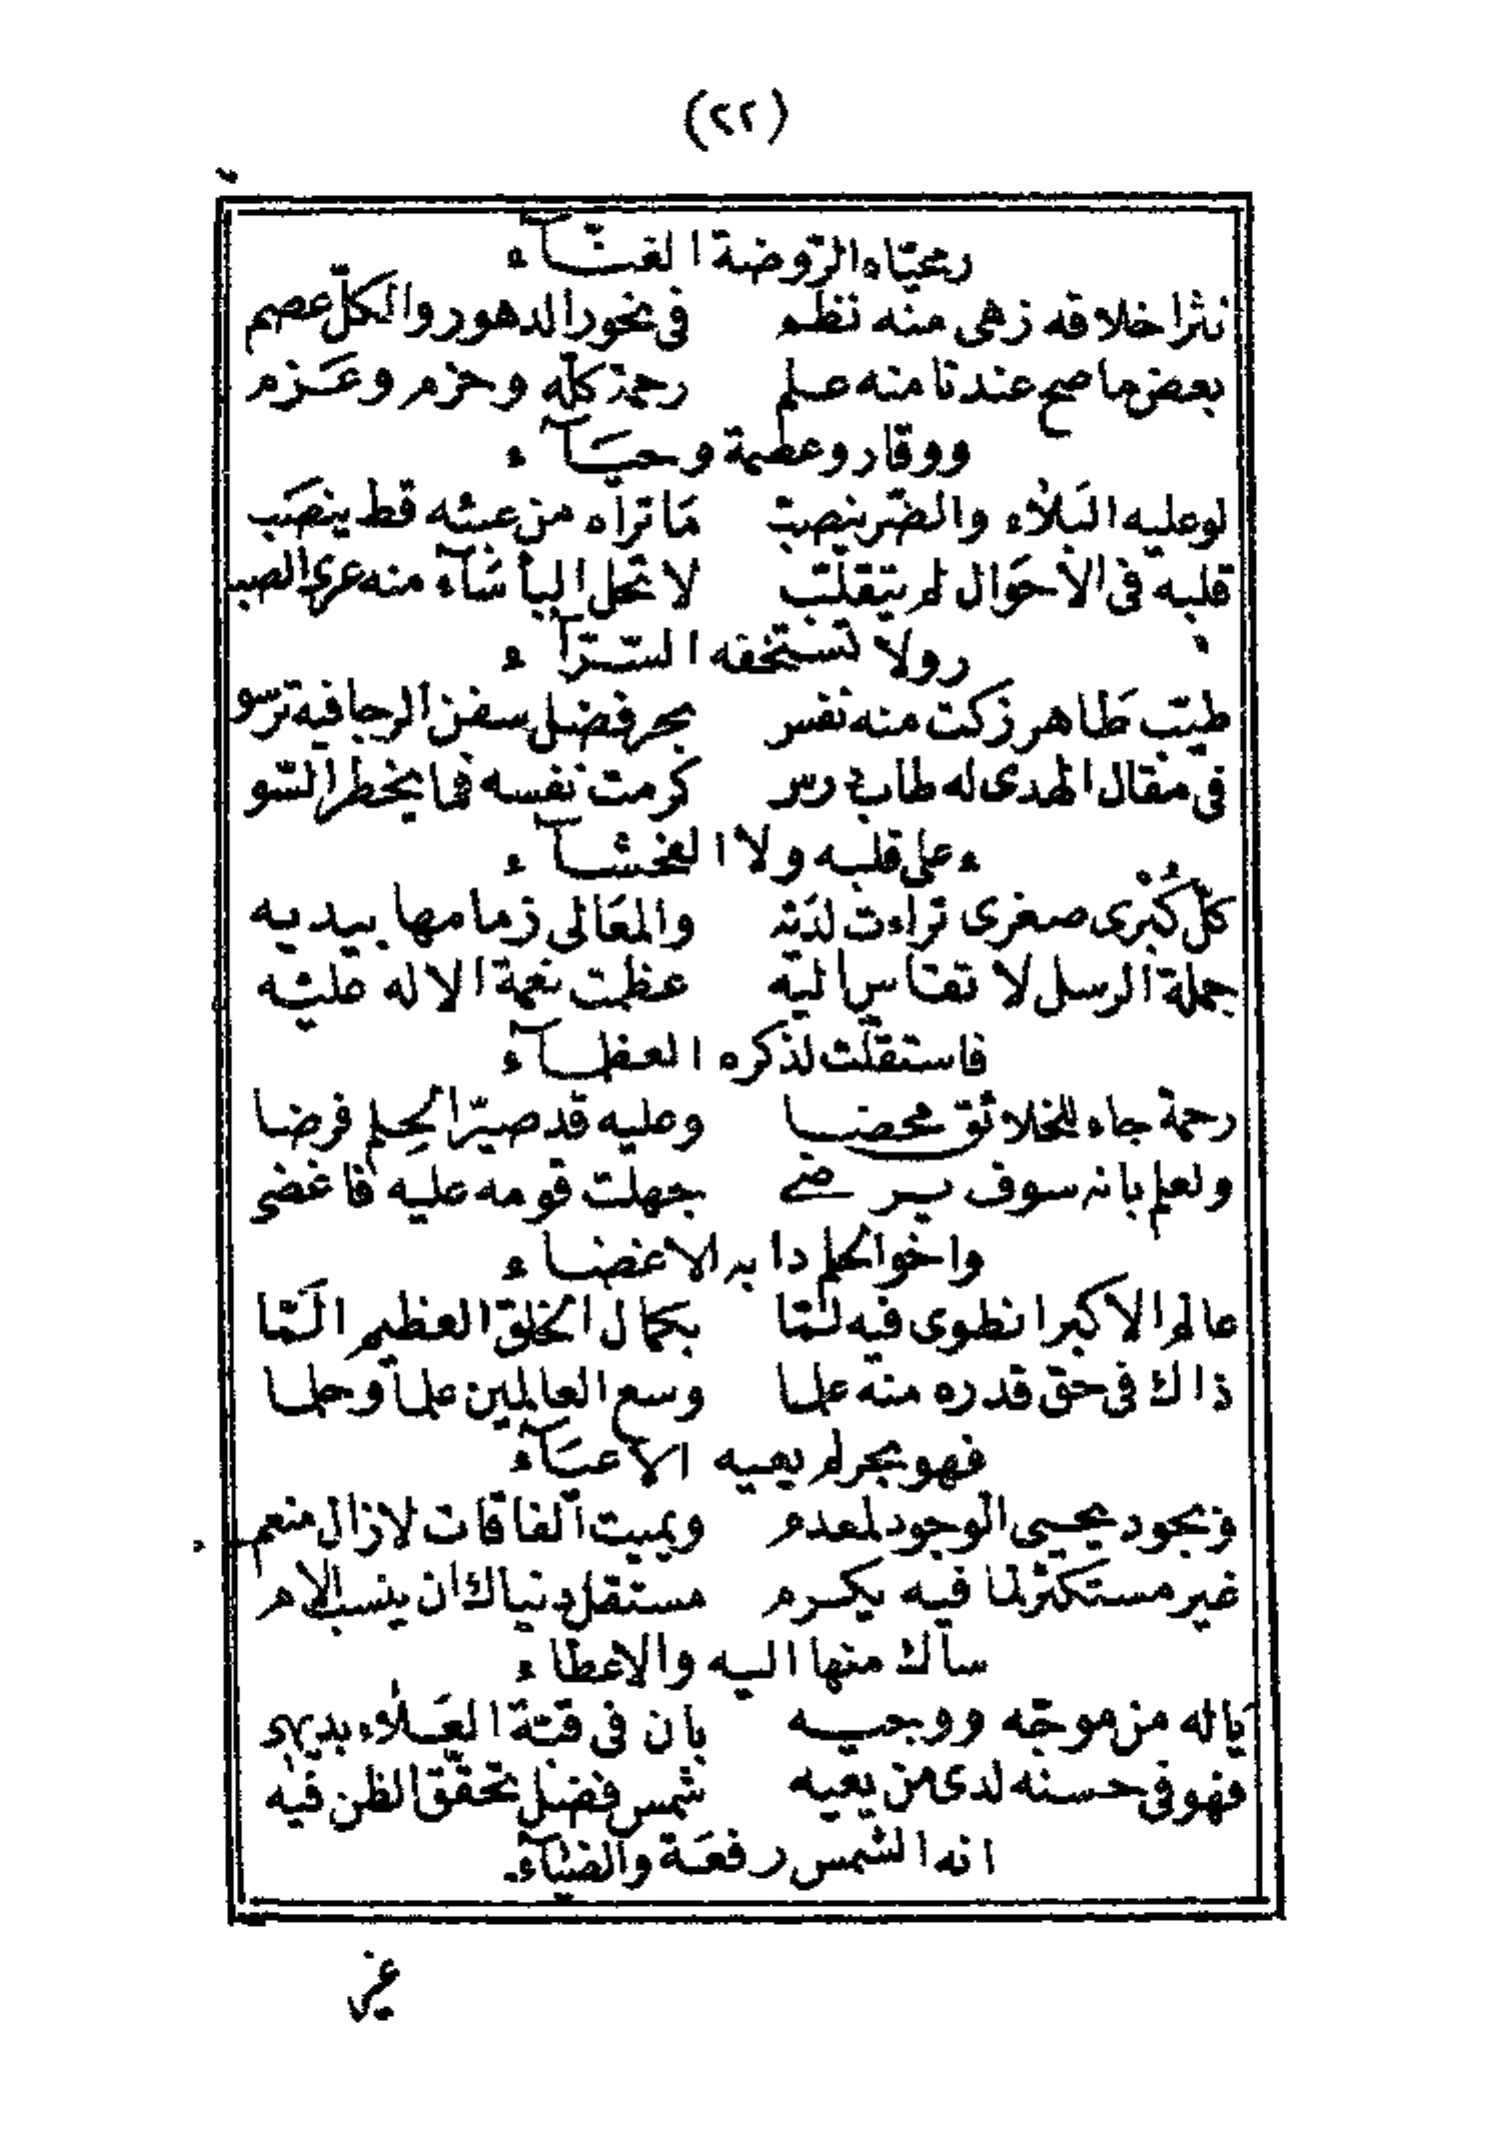 (٢٢)
ر محيّاه الرّوضة الغنّآء
نثر اخلاقه زهى منه نظم في نحور الدهور والكلّ عصم
بعض ما صح عندنا منه علم رحمة كلّه وحزم وعَزم
ووقار وعصمة وحيَآء
لو عليه البَلاء والضّر ينصبّ مَا تراه من عبئه قط ينصَب
قلبه في الاحَوال لم يتقلّب لا تحل البأسَآء منه عرى الصب
ر ولا تستخفه السّرّآء
طيّب طَاهر زكت منه نفس بحر فضل سفن الرجا فيه ترسو
في مقال الهدى له طاب كرمت نفسه فما يخطر السّو
ء على قلبه ولا الفحشآء
كلّ كُبْرى صغرى تراءت لدَيْه والمعَالى زمامها بيديه
جملة الرسل لا تقاس اليه عظمت نعمة الاله عليْه
فاستقلّت لذكره العظمآء
رحمة جاء للخلائق محضا وعليه قد صيّر الحِلم فرضا
ولعلم بانه سوف يرضى جهلت قومه عليه فاغضى
واخو الحلم دابه الاغضاء
عالم الاكبر انطوى فيه لمّا بكمال الخلق العظيم المّا
ذاك في حق قدره منه علما وسع العالمين علماً وحلما
فهو بحر لم يعيه الاعبَآء
وبجود يحيى الوجود لمعدم ويميت الفاقات لازال منعم
غير مستكثر لما فيه يكرم مستقل دنياك ان ينسب الام
ساك منها اليه والاعطاء
يَا له من موجّه ووجيه بان في قبّة العَلاء بديهى
فهو في حسنه لدى من يعيه شمس فضل تحقّق الظن فيه
انه الشمس رفعَة والضيآء